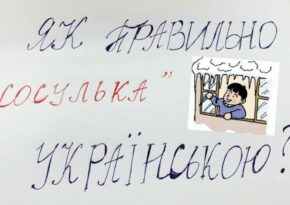 ЯК ПРАВИЛЬНО
СОСУЛЬКА"
УКРАЇНСЬКОЮ?